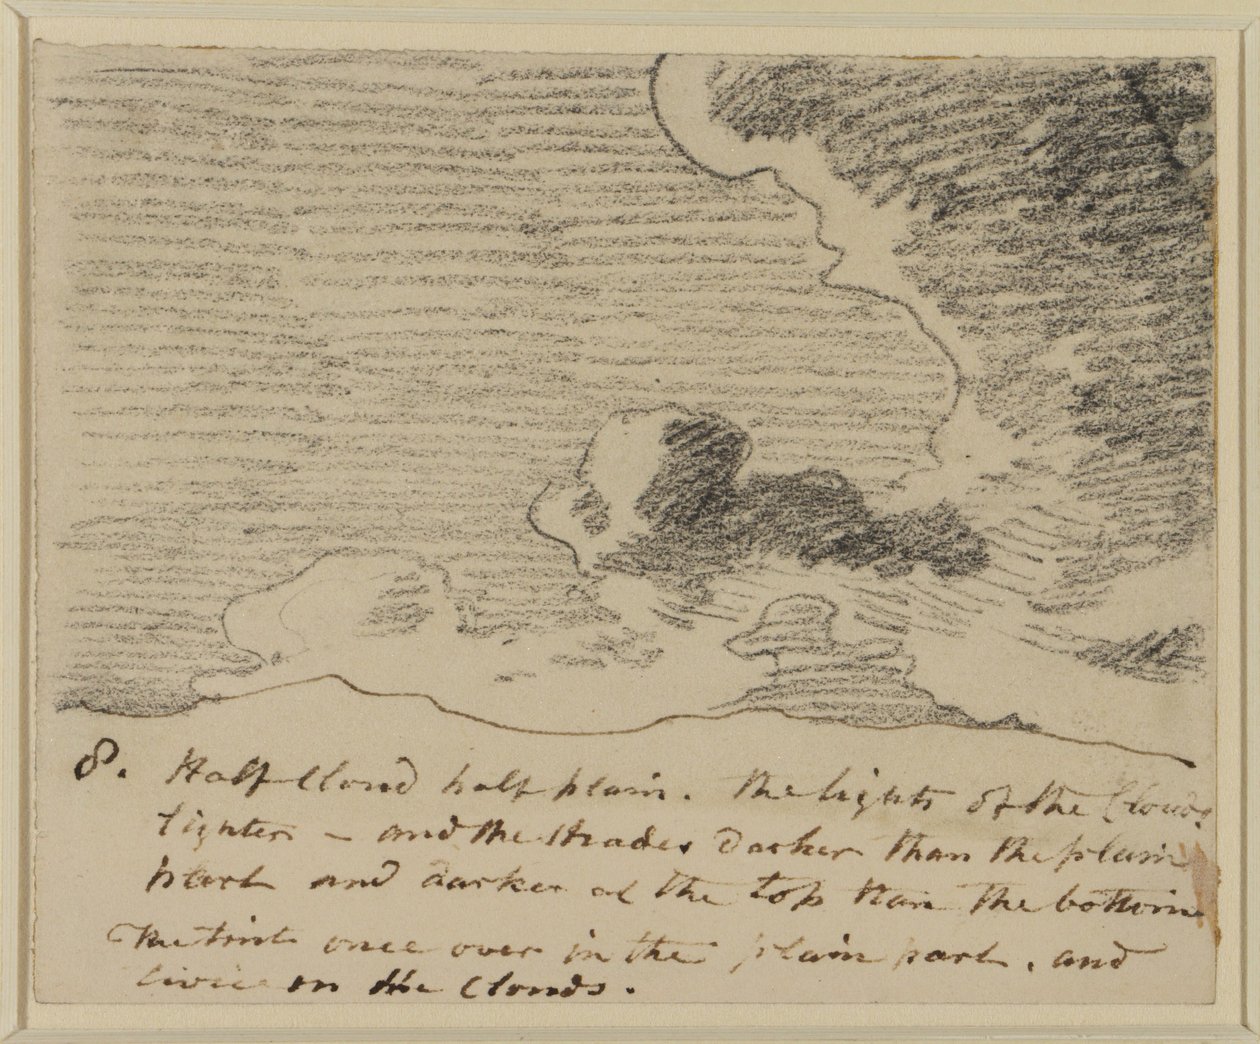 8. Half Cloud half plain. The lights of the Clouds
lighter – and the Shades darker than the plain
part and darker at the top than the bottom
The tint once over in the plain part, and
twice in the Clouds.